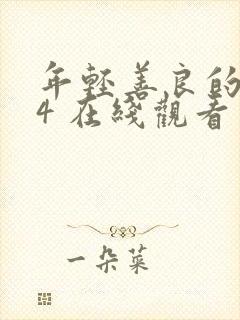 年轻善良的
4在綫觀看
一朵菜